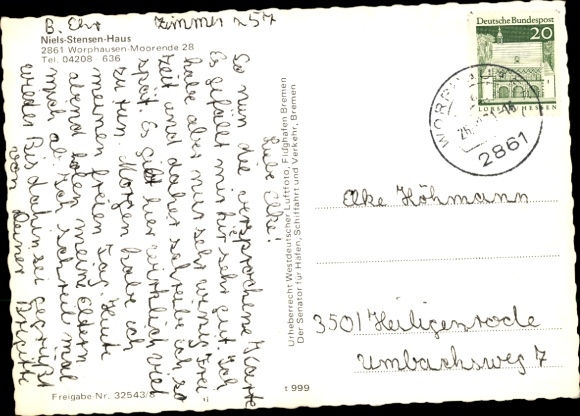 B. Ehr Zimmer 257
Niels-Stensen-Haus
2861 Worphausen-Moorende 28
Tel. 04208 636
Liebe Elke!
So nun die versprochene Karte
Es gefällt mir hier sehr gut. Ich
habe aber nur sehr wenig Frei-
zeit und daher schreibe ich so
spät. Es gibt hier wirklich viel
zu tun. Morgen habe ich
meinen freien Tag. Heute
abend holen meine Eltern
mich ab. Ich schreib mal
wieder. Bis dahin sei gegrüßt
von Deiner Brigitte
Freigabe-Nr. 32543/8
Urheberrecht Westdeutscher Luftfoto, Flughafen Bremen
Der Senator für Häfen, Schiffahrt und Verkehr, Bremen
t 999
Deutsche Bundespost
20
LORSCH/HESSEN
2861
Elke Höhmann
3501 Heiligenrode
Umbachsweg 7